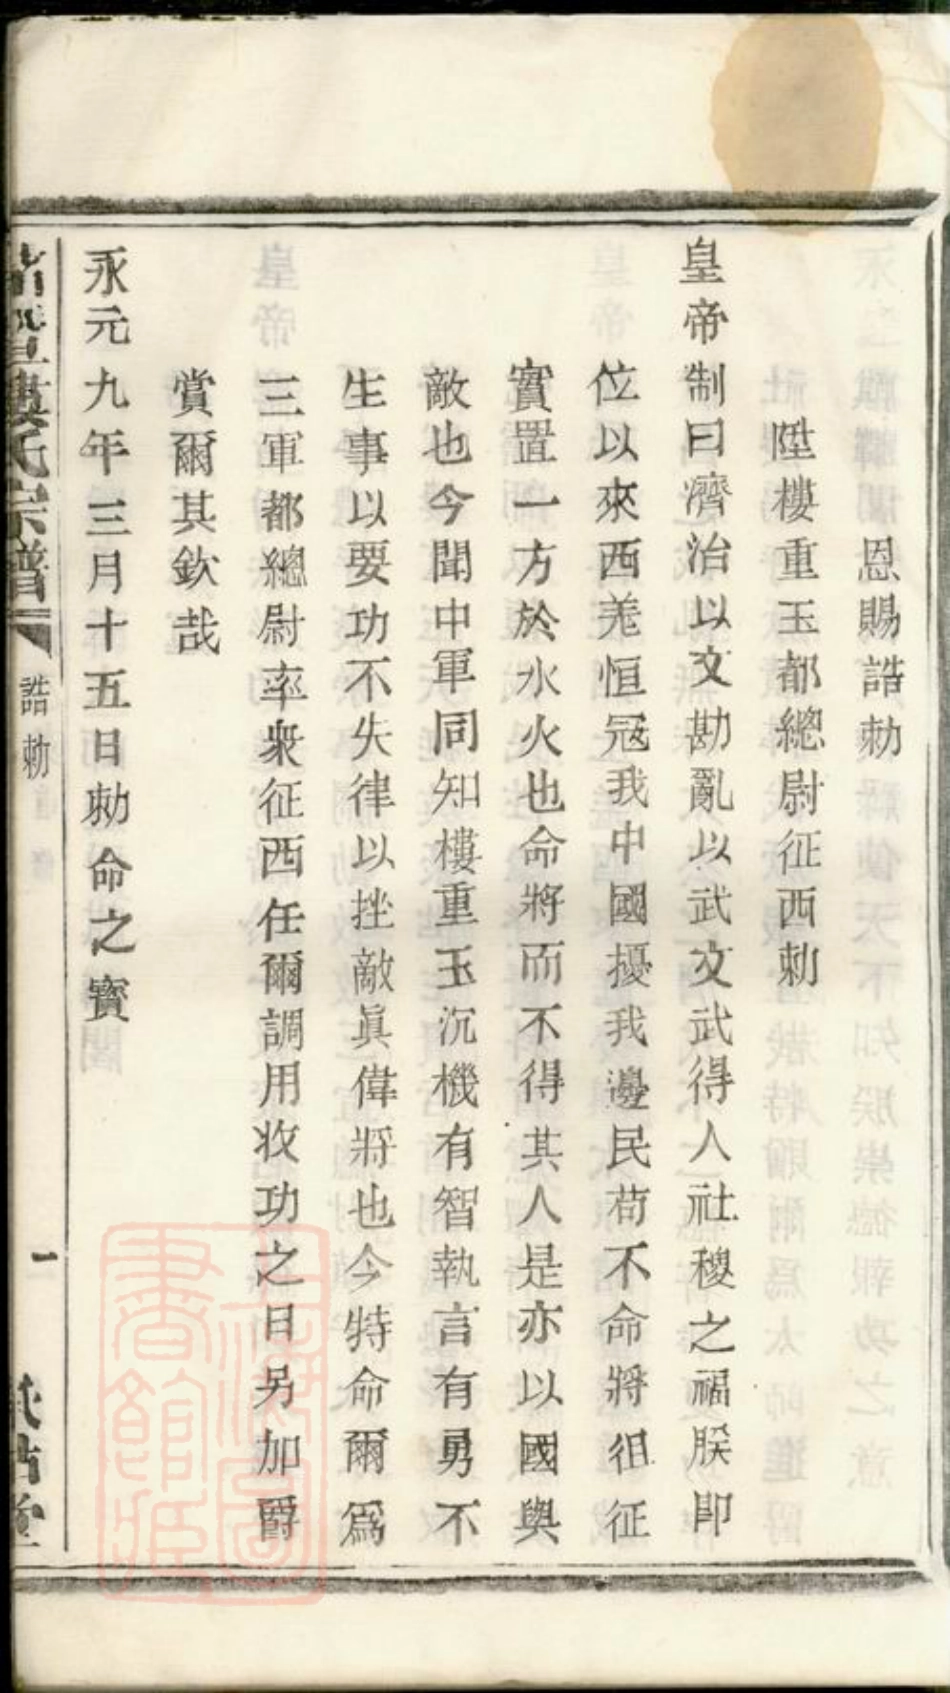 恩賜誥勅
陞樓重玉都總尉征西勅
皇帝制曰濟治以文勘亂以武文武得人社稷之福朕即
位以來西羌恒冦我中國擾我邊民苟不命將徂征
實置一方於水火也命將而不得其人是亦以國與
敵也今聞中軍同知樓重玉沉機有智執言有勇不
生事以要功不失律以挫敵眞偉將也今特命爾爲
三軍都總尉率衆征西任爾調用收功之日另加爵
賞爾其欽哉
永元九年三月十五日勅命之寳
氏宗譜
誥勅
一
上海圖書館藏